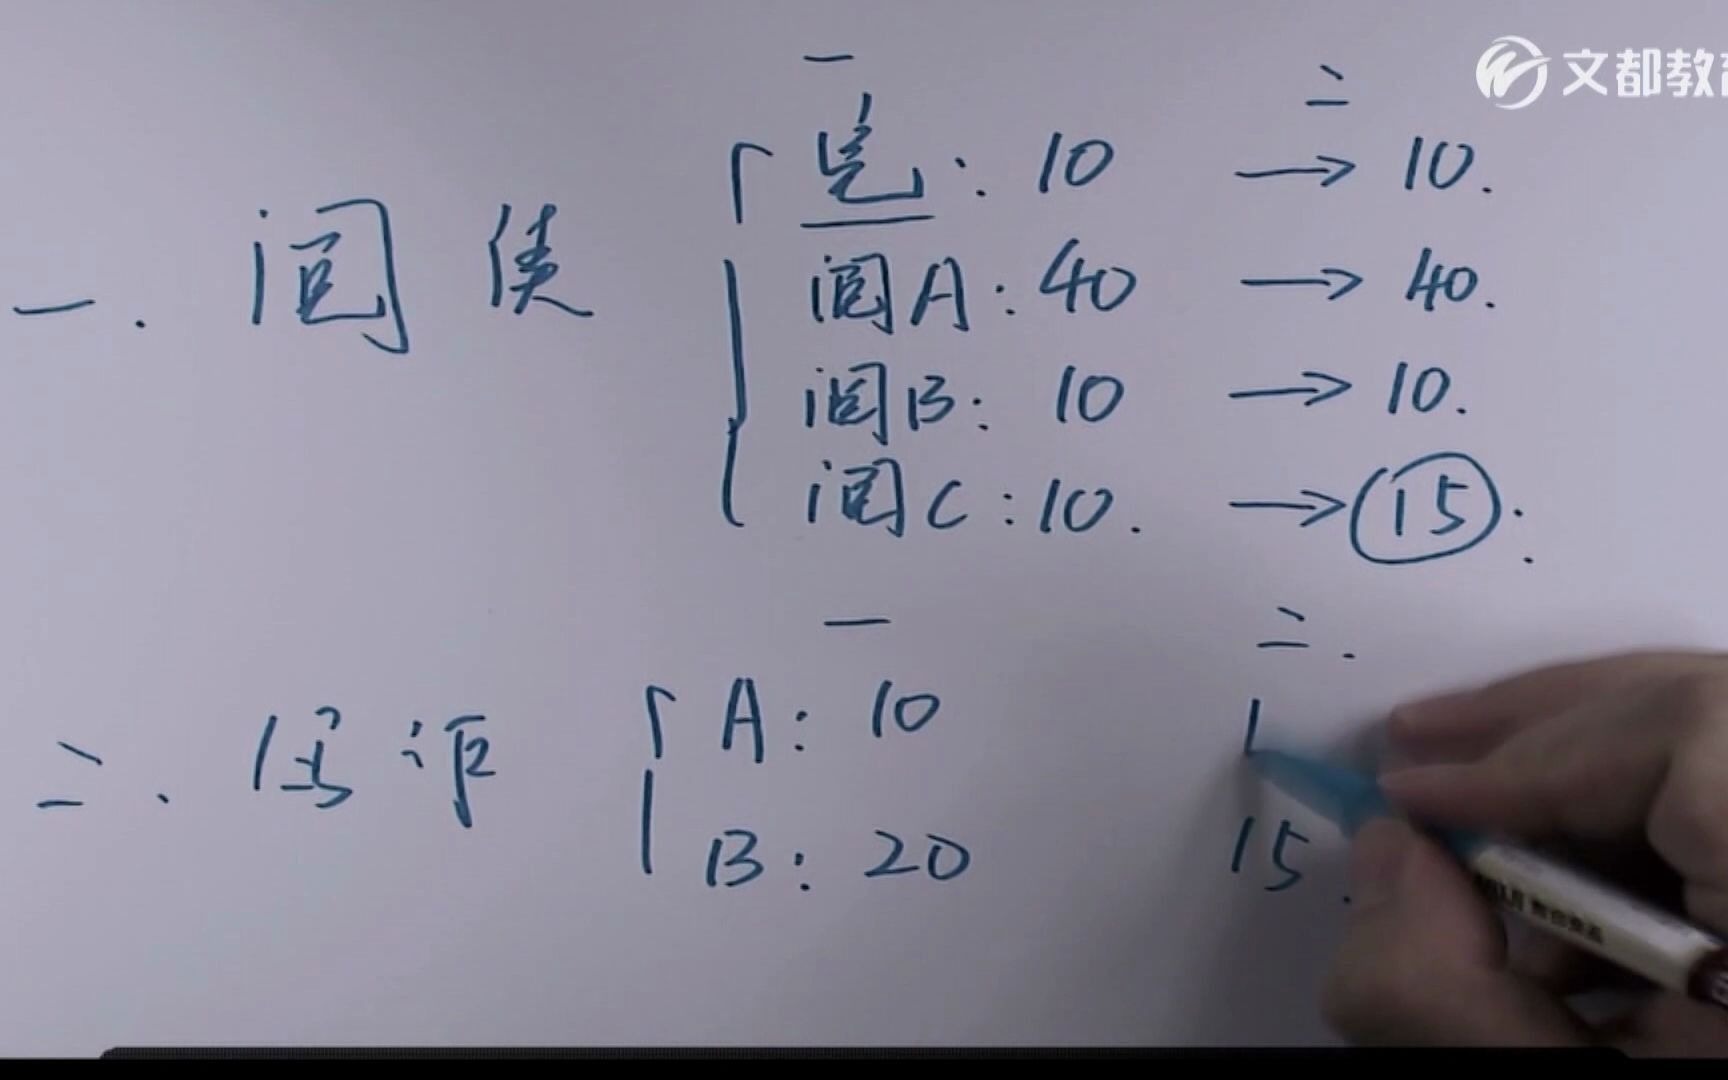 文都教育
一 二
完: 10 → 10.
一. 阅读 阅A: 40 → 40.
阅B: 10 → 10.
阅C: 10. → 15.
一 二.
A: 10 1
二. 写作
B: 20 15.